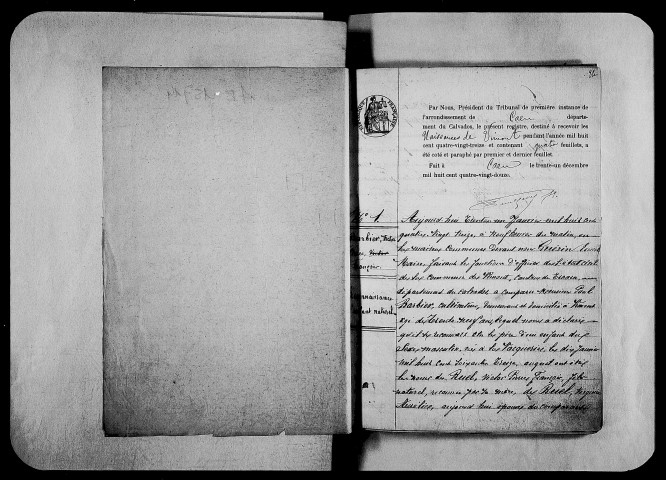 Par Nous, Président du Tribunal de première instance de
l'arrondissement de Caen départe-
ment du Calvados, le présent registre, destiné à recevoir les
Naissances de Vimont pendant l'année mil huit
cent quatre-vingt-treize et contenant quatre feuillets, a
été coté et paraphé par premier et dernier feuillet.
Fait à Caen le trente-un décembre
mil huit cent quatre-vingt-douze.
N° 1
Barbier, Victor
Pierre
François
Reconnaissance
d'enfant naturel
Aujourd'hui trente un Janvier mil huit cent
quatre vingt treize, à neuf heures du matin, en
la maison commune devant nous Guérin Louis
Maire, faisant les fonctions d'officier de l'état civil
de la commune de Vimont, canton de Troarn,
département du calvados a comparu Monsieur Paul
Barbier, cultivateur, demeurant et domicilié à Vimont
âgé de trente neuf ans, lequel nous a déclaré
qu'il se reconnait être le père d'un enfant du
Sexe masculin, né à le dix Janvier
mil huit cent soixante treize, auquel ont été
les noms de Ruel, Victor Pierre François, fils
naturel, reconnu par sa mère, de Ruel,
aujourd'hui épouse du comparant